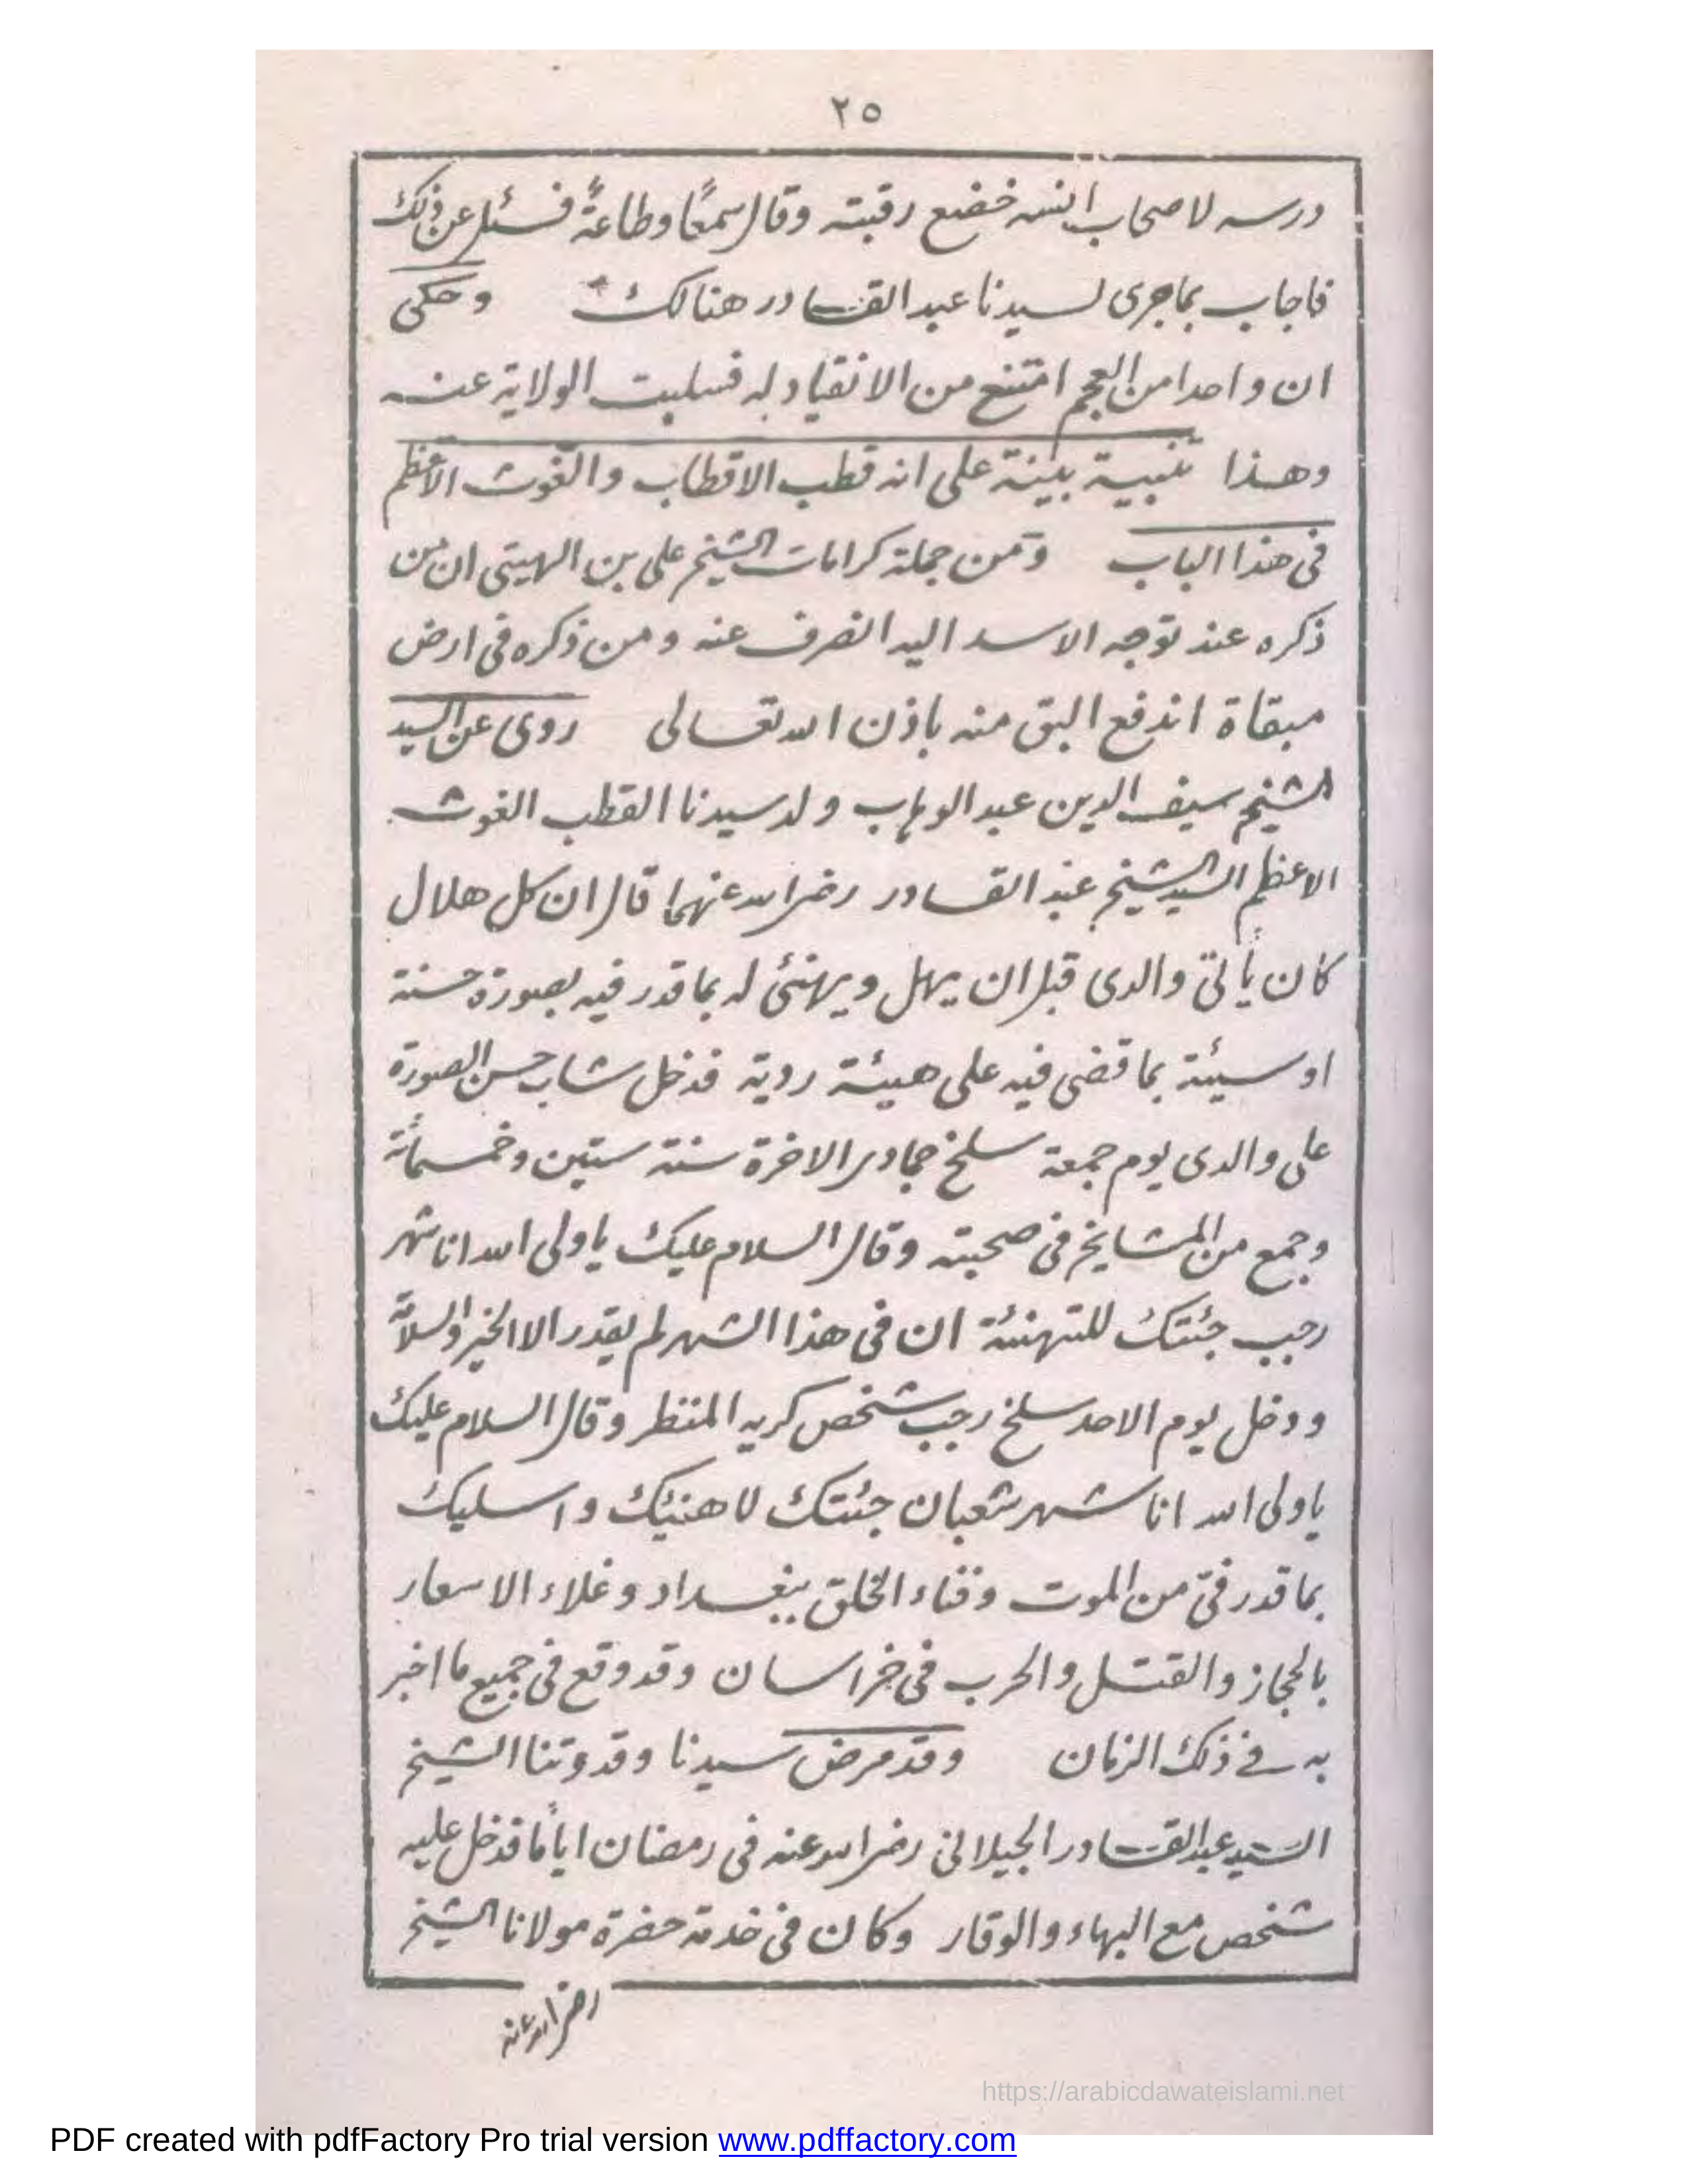 ٢٥
درسه لاصحاب انسه خضع رقبته وقال سمعًا وطاعةً فسئل عن ذلك
فاجاب بماجرى لسيدنا عبد القادر هنالك وحكى
ان واحدا من العجم امتنع من الانقياد له فسلبت الولاية عنه
وهذا تنبية بينة على انه قطب الاقطاب والغوث الأعظم
فى هذا الباب ومن جملة كرامات الشيخ على بن الهيتى ان من
ذكره عند توجه الاسد اليه انصرف عنه ومن ذكره فى ارض
مبقاة اندفع البق منه باذن الله تعالى روى عن السيد
الشيخ سيف الدين عبد الوهاب ولد سيدنا القطب الغوث
الاعظم السيد الشيخ عبد القادر رضى الله عنهما قال ان كل هلال
كان يأتى والدى قبل ان يهل ويهنئ له بما قدر فيه بصورة حسنة
او سيئة بما قضى فيه على هيئة ردية فدخل شاب حسن الصورة
على والدى يوم جمعة سلخ جمادى الاخرة سنة ستين وخمسمائة
وجمع من المشايخ فى صحبته وقال السلام عليك ياولى الله انا شهر
رجب جئتك للتهنئة ان فى هذا الشهر لم يقدر الا الخير والسلام
ودخل يوم الاحد سلخ رجب شخص كريه المنظر وقال السلام عليك
ياولى الله انا شهر شعبان جئتك لاهنيك واسليك
بما قدر فىّ من الموت وفناء الخلق ببغداد وغلاء الاسعار
بالحجاز والقتل والحرب فى خراسان وقد وقع فى جميع ما اخبر
به فى ذلك الزمان وقد مرض سيدنا وقدوتنا الشيخ
السيد عبد القادر الجيلانى رضى الله عنه فى رمضان ايامًا فدخل عليه
شخص مع البهاء والوقار وكان فى خدمة حضرة مولانا الشيخ
رضى الله عنه
https://arabicdawateislami.net
PDF created with pdfFactory Pro trial version www.pdffactory.com